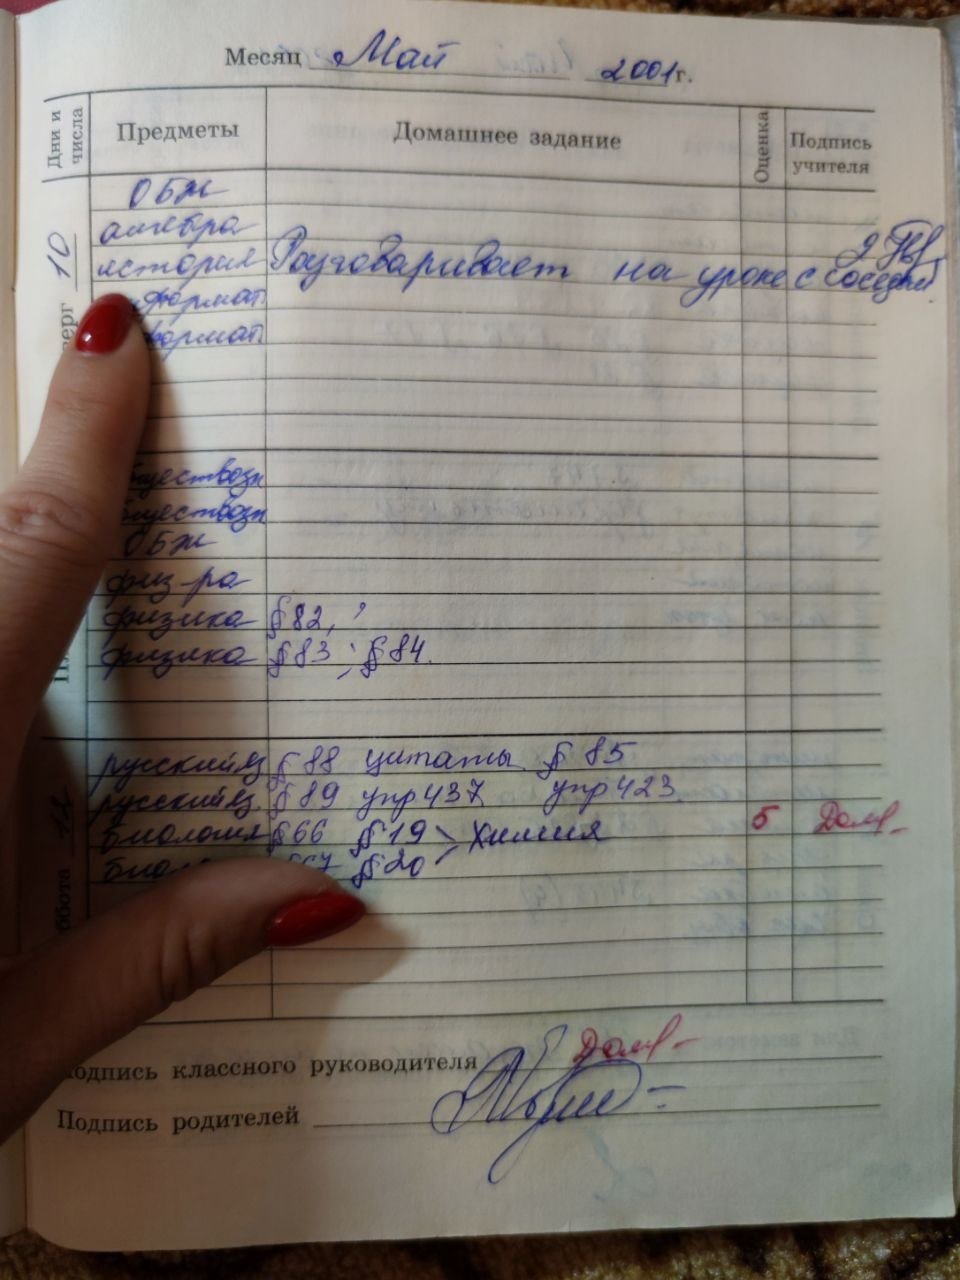 Месяц Май 2001г.
Дни и числа Предметы Домашнее задание Оценка Подпись учителя
ОБЖ
алгебра
10 история Разговаривает на уроке с соседкой
формат.
формат.
ОБЖ
физ-ра
физика § 82,
физика § 83 ; § 84.
русский яз § 88 цитаты § 85
русский яз. § 89 упр 437 упр 423
12 биология § 66 § 19 Химия 5
§ 20
Подпись классного руководителя
Подпись родителей